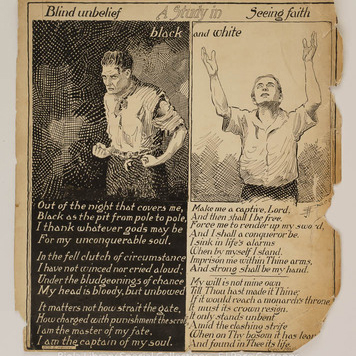 Blind unbelief A Study in Seeing faith
black and white
Out of the night that covers me,
Black as the pit from pole to pole,
I thank whatever gods may be
For my unconquerable soul.
In the fell clutch of circumstance
I have not winced nor cried aloud;
Under the bludgeonings of chance
My head is bloody, but unbowed
It matters not how strait the gate,
How charged with punishment the scroll
I am the master of my fate,
I am the captain of my soul.
Make me a captive, Lord,
And then shall I be free.
Force me to render up my sword,
And I shall conqueror be.
I sink in life's alarms
When by myself I stand,
Imprison me within Thine arms,
And strong shall be my hand.
My will is not mine own
Till Thou hast made it Thine;
If it would reach a monarch's throne
It must its crown resign.
It only stands unbent
Amid the clashing strife
When on Thy bosom it has leant
And found in Thee its life.